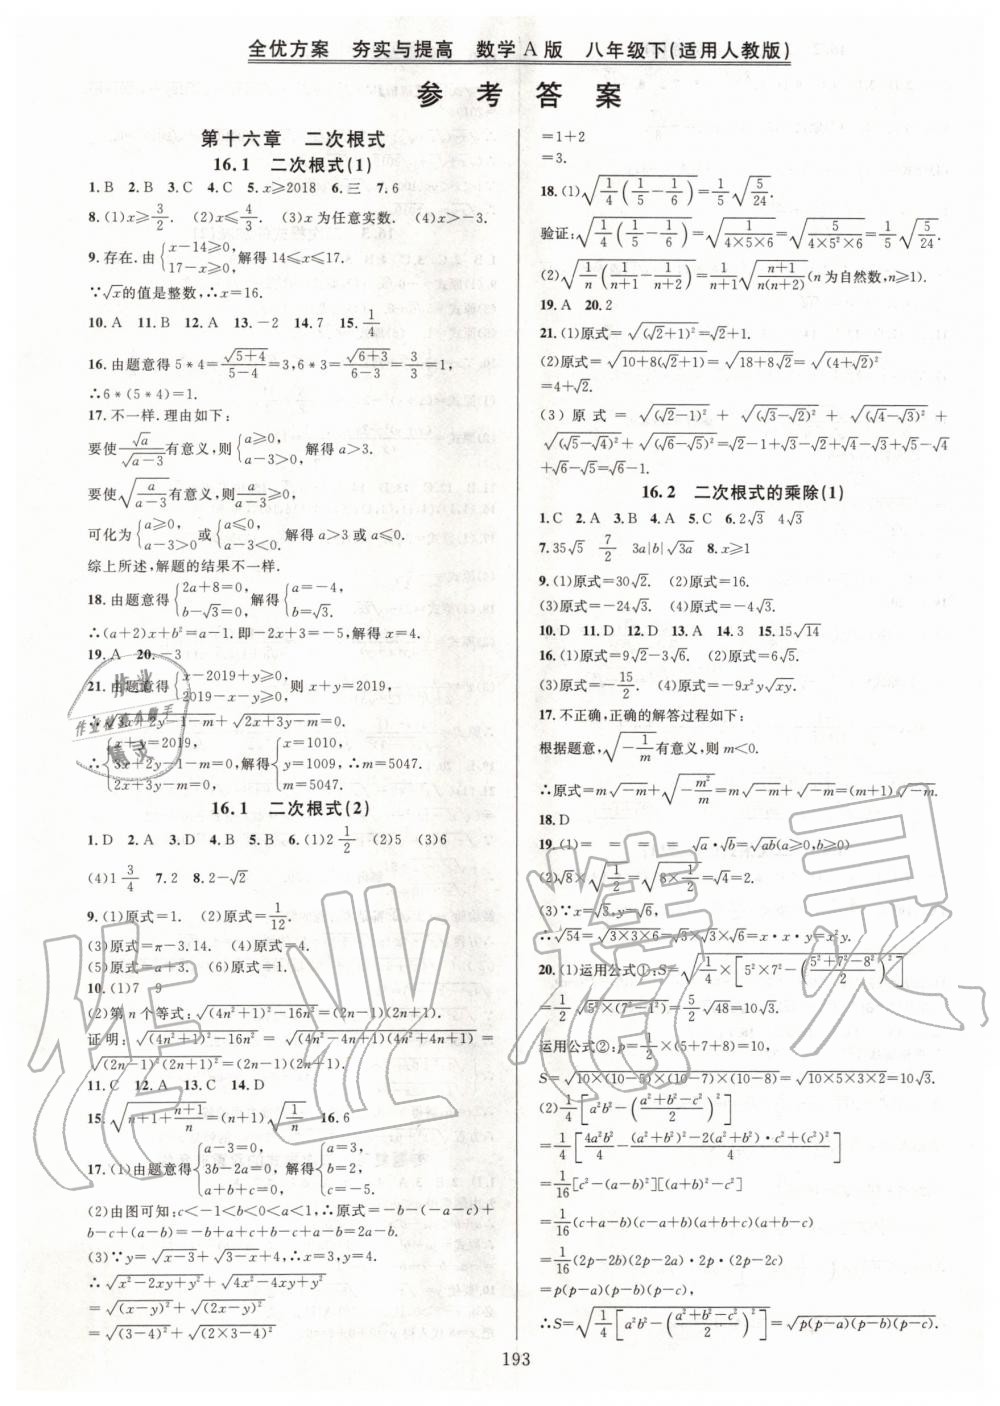 全优方案　夯实与提高　数学A版　八年级下(适用人教版)
参考答案
第十六章　二次根式
16.1　二次根式(1)
1.B　2.B　3.C　4.C　5.x≥2018　6.三　7.6
8.(1)x≥3/2.　(2)x≤4/3.　(3)x为任意实数.　(4)x>-3.
9.存在.由{x-14≥0, 17-x≥0,解得14≤x≤17.
∵√x的值是整数,∴x=16.
10.A　11.B　12.A　13.-2　14.7　15.1/4
16.由题意得5*4=√(5+4)/(5-4)=3,6*3=√(6+3)/(6-3)=3/3=1,
∴6*(5*4)=1.
17.不一样.理由如下:
要使√a/√(a-3)有意义,则{a≥0, a-3>0,解得a>3.
要使√(a/(a-3))有意义,则a/(a-3)≥0,
可化为{a≥0, a-3>0或{a≤0, a-3<0.解得a>3或a≤0.
综上所述,解题的结果不一样.
18.由题意得{2a+8=0, b-√3=0,解得{a=-4, b=√3.
∴(a+2)x+b²=a-1.即-2x+3=-5,解得x=4.
19.A　20.-3
21.由题意得{x-2019+y≥0, 2019-x-y≥0,则x+y=2019,
∴√(3x+2y-1-m)+√(2x+3y-m)=0.
∴{x+y=2019, 3x+2y-1-m=0, 2x+3y-m=0,解得{x=1010, y=1009, m=5047.∴m=5047.
16.1　二次根式(2)
1.D　2.A　3.D　4.B　5.B　6.(1)2 1/2　(2)5　(3)6
(4)1 3/4　7.2　8.2-√2
9.(1)原式=1.　(2)原式=1/12.
(3)原式=π-3.14.　(4)原式=4.
(5)原式=a+3.　(6)原式=1.
10.(1)7　9
(2)第n个等式:√((4n²+1)²-16n²)=(2n-1)(2n+1).
证明:√((4n²+1)²-16n²)=√((4n²-4n+1)(4n²+4n+1))=
√((2n-1)²(2n+1)²)=(2n-1)(2n+1).
11.C　12.A　13.C　14.D
15.√(n+1+(n+1)/n)=(n+1)√(1/n)　16.6
17.(1)由题意得{a-3=0, 3b-2a=0, a+b+c=0,解得{a=3, b=2, c=-5.
(2)由图可知:c<-1<b<0<a<1,∴原式=-b-(-a-c)+
b-c+(a-b)=-b+a+c+b-c+a-b=2a-b.
(3)∵y=√(x-3)+√(3-x)+4,∴x=3,y=4.
∴√(x²-2xy+y²)+√(4x²-4xy+y²)
=√((x-y)²)+√((2x-y)²)
=√((3-4)²)+√((2×3-4)²)
=1+2
=3.
18.(1)√(1/4(1/5-1/6))=1/5√(5/24).
验证:√(1/4(1/5-1/6))=√(1/(4×5×6))=√(5/(4×5²×6))=1/5√(5/24).
(2)√(1/n(1/(n+1)-1/(n+2)))=1/(n+1)√((n+1)/(n(n+2)))(n为自然数,n≥1).
19.A　20.2
21.(1)原式=√((√2+1)²)=√2+1.
(2)原式=√(10+8(√2+1))=√(18+8√2)=√((4+√2)²)
=4+√2.
(3)原式=√((√2-1)²)+√((√3-√2)²)+√((√4-√3)²)+
√((√5-√4)²)+√((√6-√5)²)=√2-1+√3-√2+√4-√3+√5-√4
+√6-√5=√6-1.
16.2　二次根式的乘除(1)
1.C　2.A　3.B　4.A　5.C　6.2√3　4√3
7.35√5　7/2　3a|b|√(3a)　8.x≥1
9.(1)原式=30√2.　(2)原式=16.
(3)原式=-24√3.　(4)原式=-4√3.
10.D　11.D　12.D　13.A　14.3　15.15√14
16.(1)原式=9√2-3√6.　(2)原式=6√2.
(3)原式=-15/2.　(4)原式=-9x²y√(xy).
17.不正确,正确的解答过程如下:
根据题意,√(-1/m)有意义,则m<0.
∴原式=m√(-m)+√(-m²/m)=m√(-m)+√(-m)=(m+1)√(-m).
18.D
19.(1)=　=　=　=　√a·√b=√(ab)(a≥0,b≥0)
(2)√8×√(1/2)=√(8×1/2)=√4=2.
(3)∵x=√3,y=√6,
∴√54=√(3×3×6)=√3×√3×√6=x·x·y=x²y.
20.(1)运用公式①:S=√(1/4×[5²×7²-((5²+7²-8²)/2)²])
=1/2√(5²×(7²-1²))=5/2√48=10√3.
运用公式②:p=1/2×(5+7+8)=10,
S=√(10×(10-5)×(10-7)×(10-8))=√(10×5×3×2)=10√3.
(2)1/4[a²b²-((a²+b²-c²)/2)²]
=1/4[4a²b²/4-((a²+b²)²-2(a²+b²)·c²+(c²)²)/4]
=1/16[c²-(a-b)²][(a+b)²-c²]
=1/16(c+a-b)(c-a+b)(a+b+c)(a+b-c)
=1/16(2p-2b)(2p-2a)·2p·(2p-2c)
=p(p-a)(p-b)(p-c),
∴S=√(1/4[a²b²-((a²+b²-c²)/2)²])=√(p(p-a)(p-b)(p-c)).
193
作业精灵